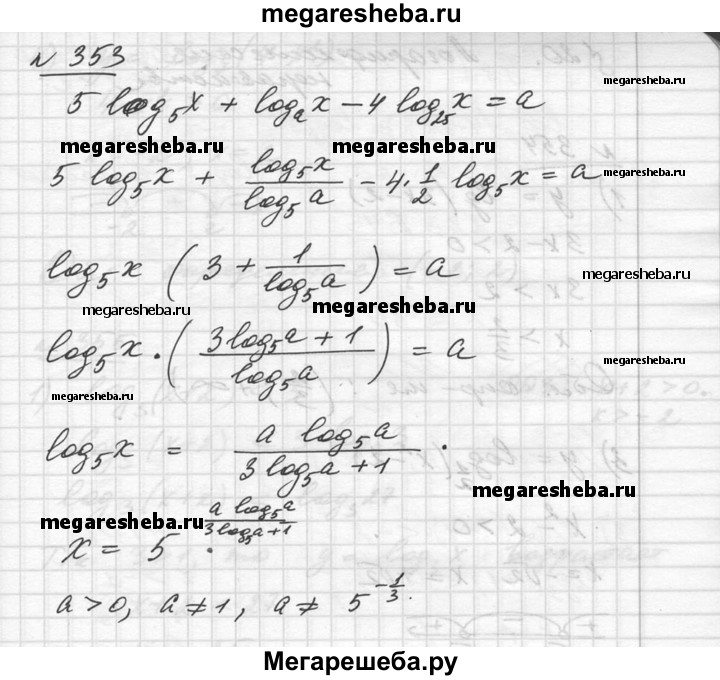 megaresheba.ru
№ 353
5 log₅x + logₐx − 4 log₂₅x = a
megaresheba.ru
megaresheba.ru
5 log₅x + log₅x / log₅a − 4 · 1/2 log₅x = a
megaresheba.ru
log₅x (3 + 1 / log₅a) = a
megaresheba.ru
megaresheba.ru
megaresheba.ru
log₅x · ((3 log₅a + 1) / log₅a) = a
megaresheba.ru
megaresheba.ru
log₅x = a log₅a / (3 log₅a + 1) .
megaresheba.ru
megaresheba.ru
x = 5^(a log₅a / (3 log₅a + 1)) .
a > 0, a ≠ 1, a ≠ 5^(−1/3).
Мегарешеба.ру